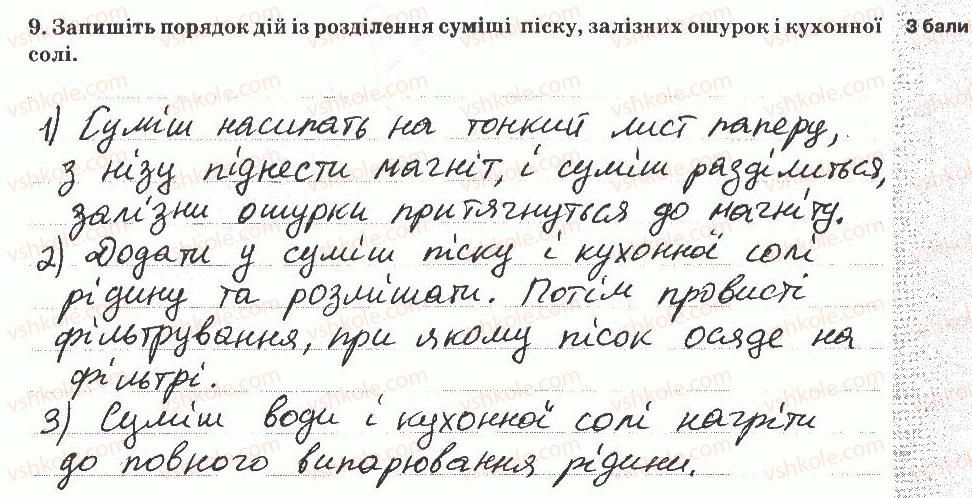 9. Запишіть порядок дій із розділення суміші піску, залізних ошурок і кухонної 3 бали
солі.
1) Суміш насипать на тонкий лист паперу,
з нізу піднести магніт, і суміш разділиться,
залізни ошурки притягнуться до магніту.
2) Додати у суміш піску і кухонної солі
рідину та розмішати. Потім провисті
фільтрування, при якому пісок осяде на
фільтрі.
3) Суміш води і кухонної солі нагріти
до повного випарювання рідини.